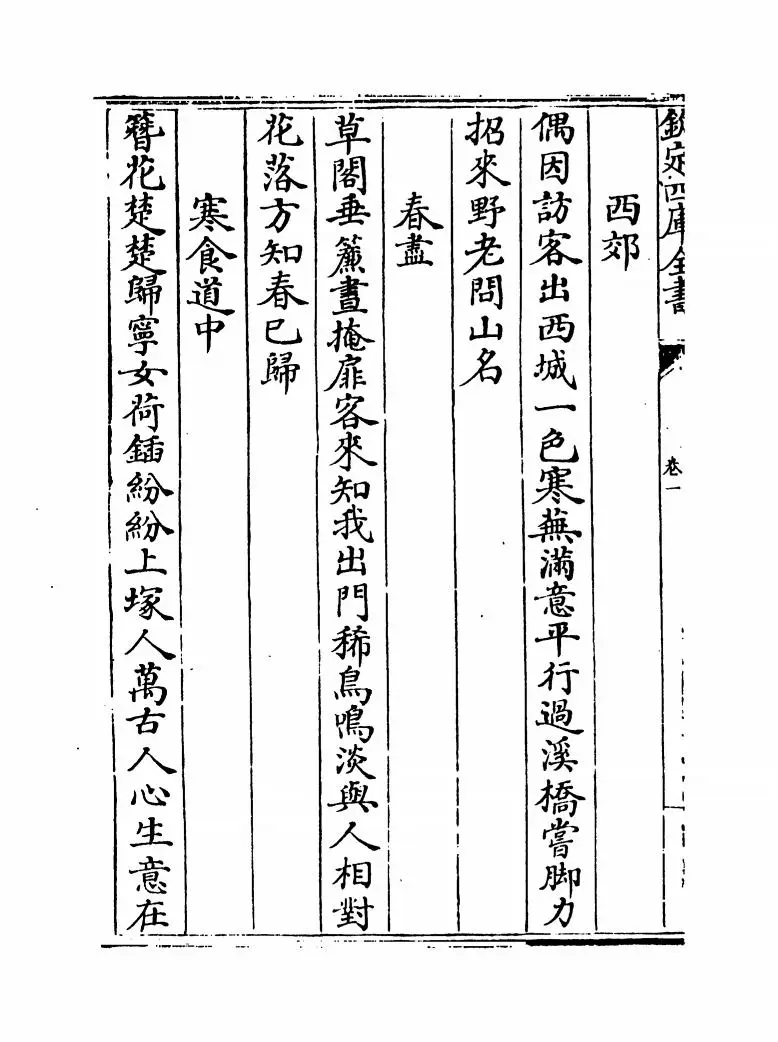 欽定四庫全書
卷一
西郊
偶因訪客出西城一色寒蕪滿意平行過溪橋嘗脚力
招來野老問山名
春盡
草閣垂簾晝掩扉客來知我出門稀鳥鳴淡與人相對
花落方知春已歸
寒食道中
簪花楚楚歸寧女荷鍤紛紛上塚人萬古人心生意在